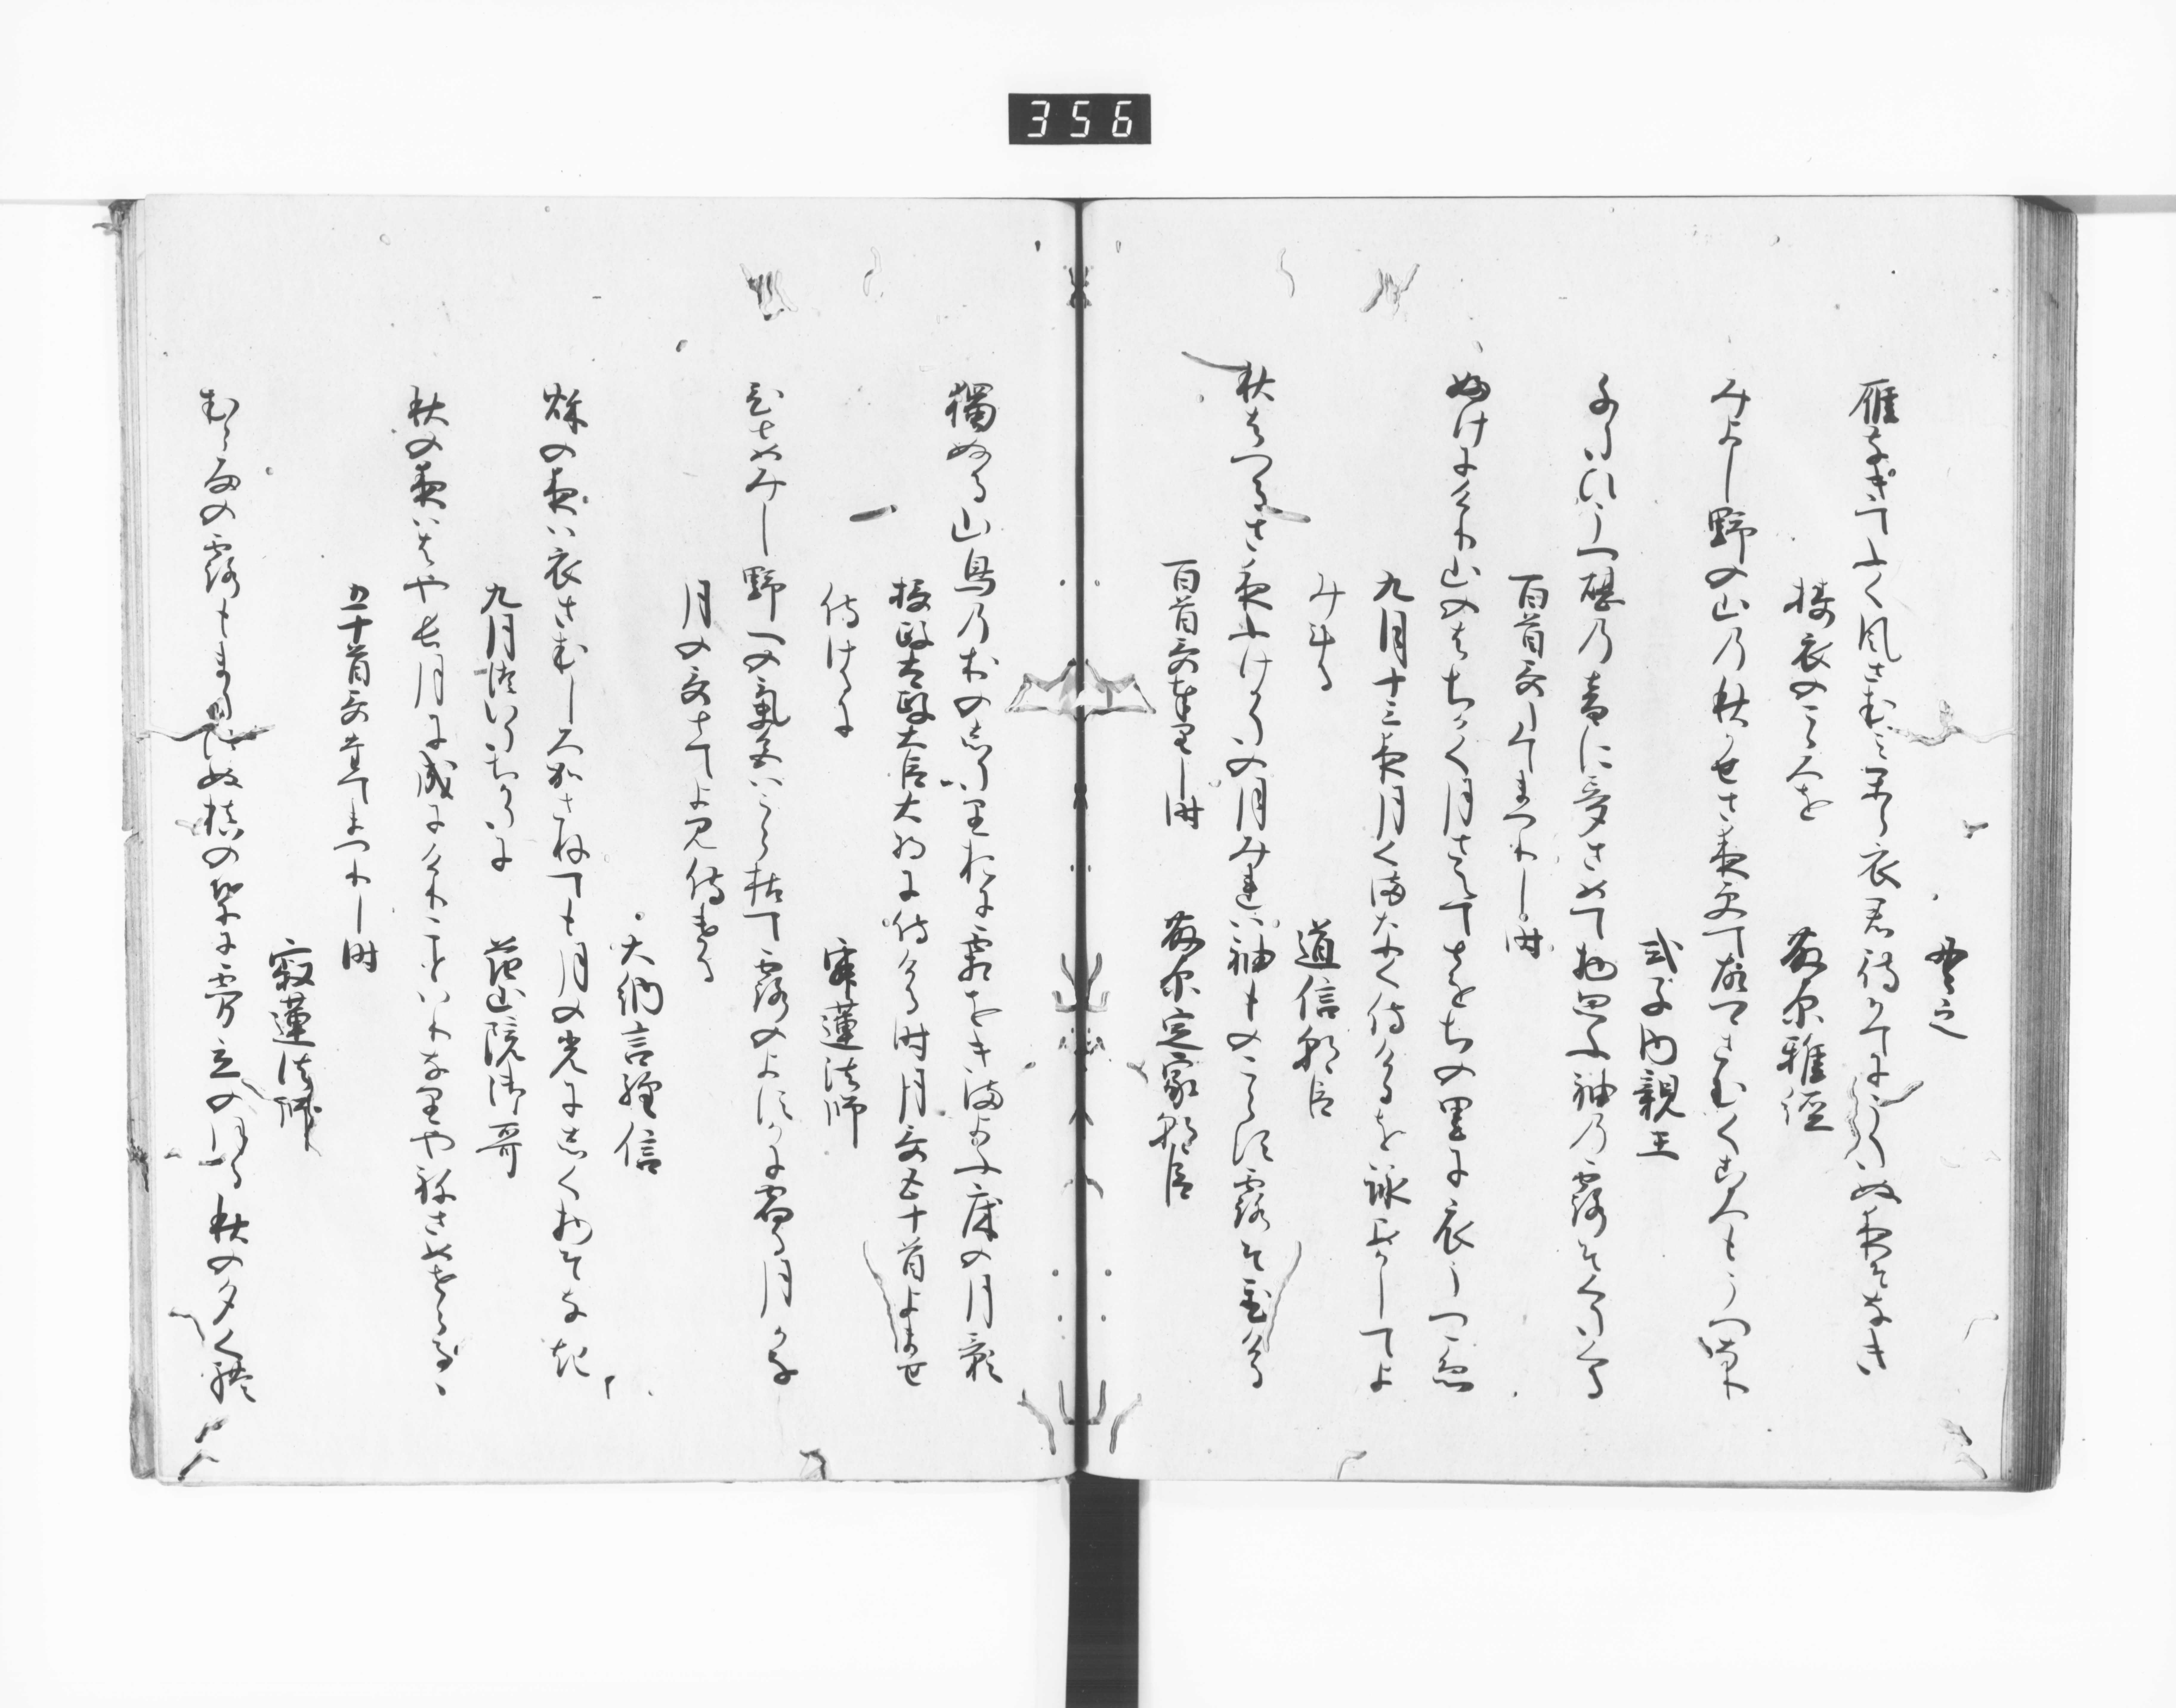 356
貫之
雁なきてふく風さむミ衣君待かてにうたぬ夜そなき
擣衣のこゝろを
藤原雅経
みよし野の山乃秋かせさ夜更て故郷さむく衣うつ也
式子内親王
千たひうつ砧乃音に夢さめて物思ふ袖乃露そくたくる
百首哥たてまつりし時
ふけにけり山のはちかく月さえてとをちの里に衣うつ声
九月十三夜月くまなく侍けるを詠あかしてよ
みける
道信朝臣
秋はつるさ夜ふけかたの月みれは袖ものこらす露そ置ける
百首哥奉りし時
藤原定家朝臣
獨ぬる山鳥乃尾のしたりおに霜をきまよふ床の月影
摂政太政大臣大将に侍ける時月哥五十首よませ
侍けるに
寂蓮法師
ひとめみし野への気色はうら枯て露のよすかに宿る月かな
月の哥とてよみ侍ける
大納言経信
秋の夜は衣さむしろかさねても月の光にしく物そなき
九月ついたちかたに
花山院御哥
秋の夜ははや長月に成にけりことハりなりやねさめせらるゝ
五十首哥奉てまつりし時
寂蓮法師
むら雨の露もまたひぬ槙の葉に霧立のほる秋の夕暮